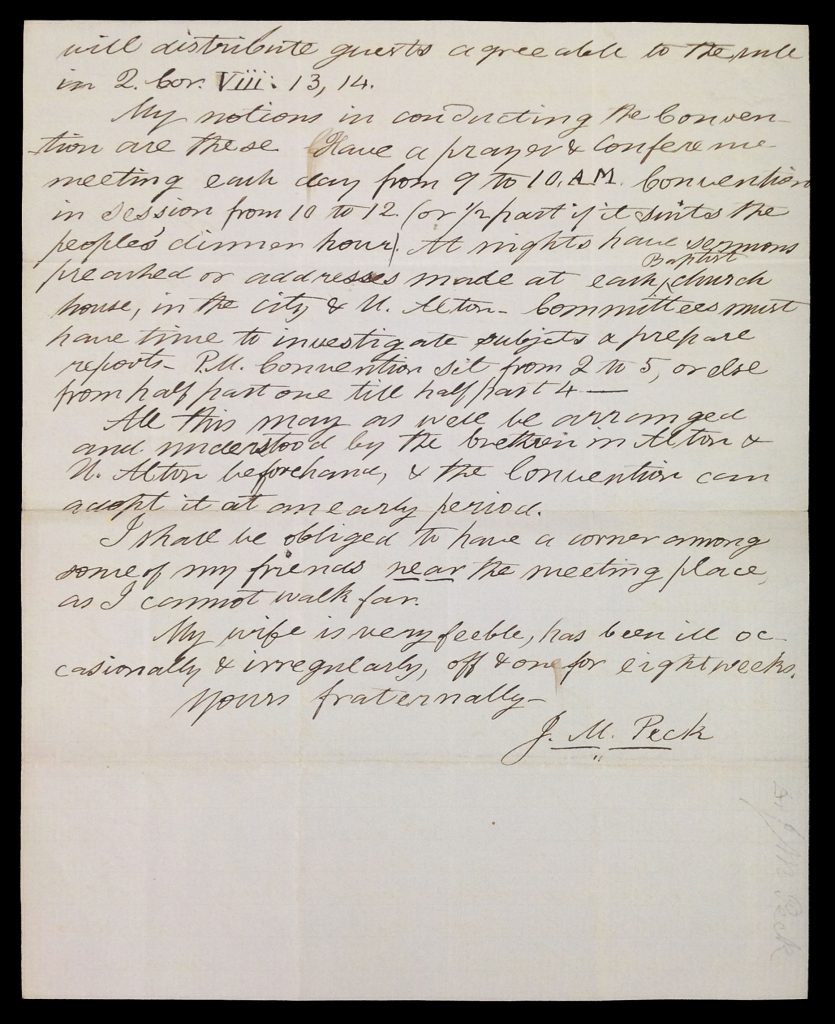 will distribute guests agreeable to the rule
in 2. Cor. VIII: 13, 14.
My notions in conducting the Conven-
tion are these Have a prayer & Conference
meeting each day from 9 to 10, A.M. Convention
in session from 10 to 12. (or ½ past if it suits the
people's dinner hour). At nights have sermons
preached or addresses made at each Baptist church
house, in the city & U. Alton- Committees must
have time to investigate subjects & prepare
reports- P.M. Convention sit from 2 to 5, or else
from half past one till half past 4 —
All this may as well be arranged
and understood by the brethren in Alton &
U. Alton beforehand, & the Convention can
adopt it at an early period.
I shall be obliged to have a corner among
some of my friends near the meeting place,
as I cannot walk far.
My wife is very feeble, has been ill oc-
casionally & irregularly, off & on for eight weeks.
Yours fraternally-
J. M. Peck
Peck